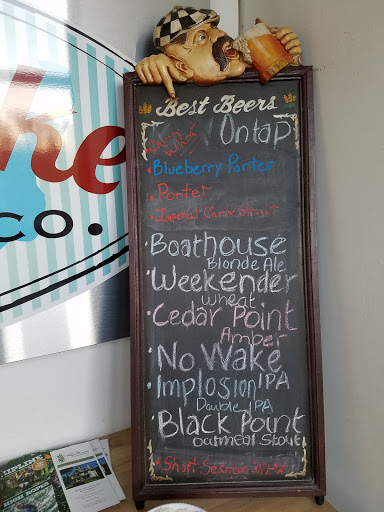 ke
CO.
Best Beers
Ontap
Blueberry Porter
Porter
Imperial
Boathouse
Blonde Ale
Weekender
Wheat
Cedar Point
Amber
No Wake
IPA
Implosion
Double IPA
Black Point
Oatmeal Stout
Short Session